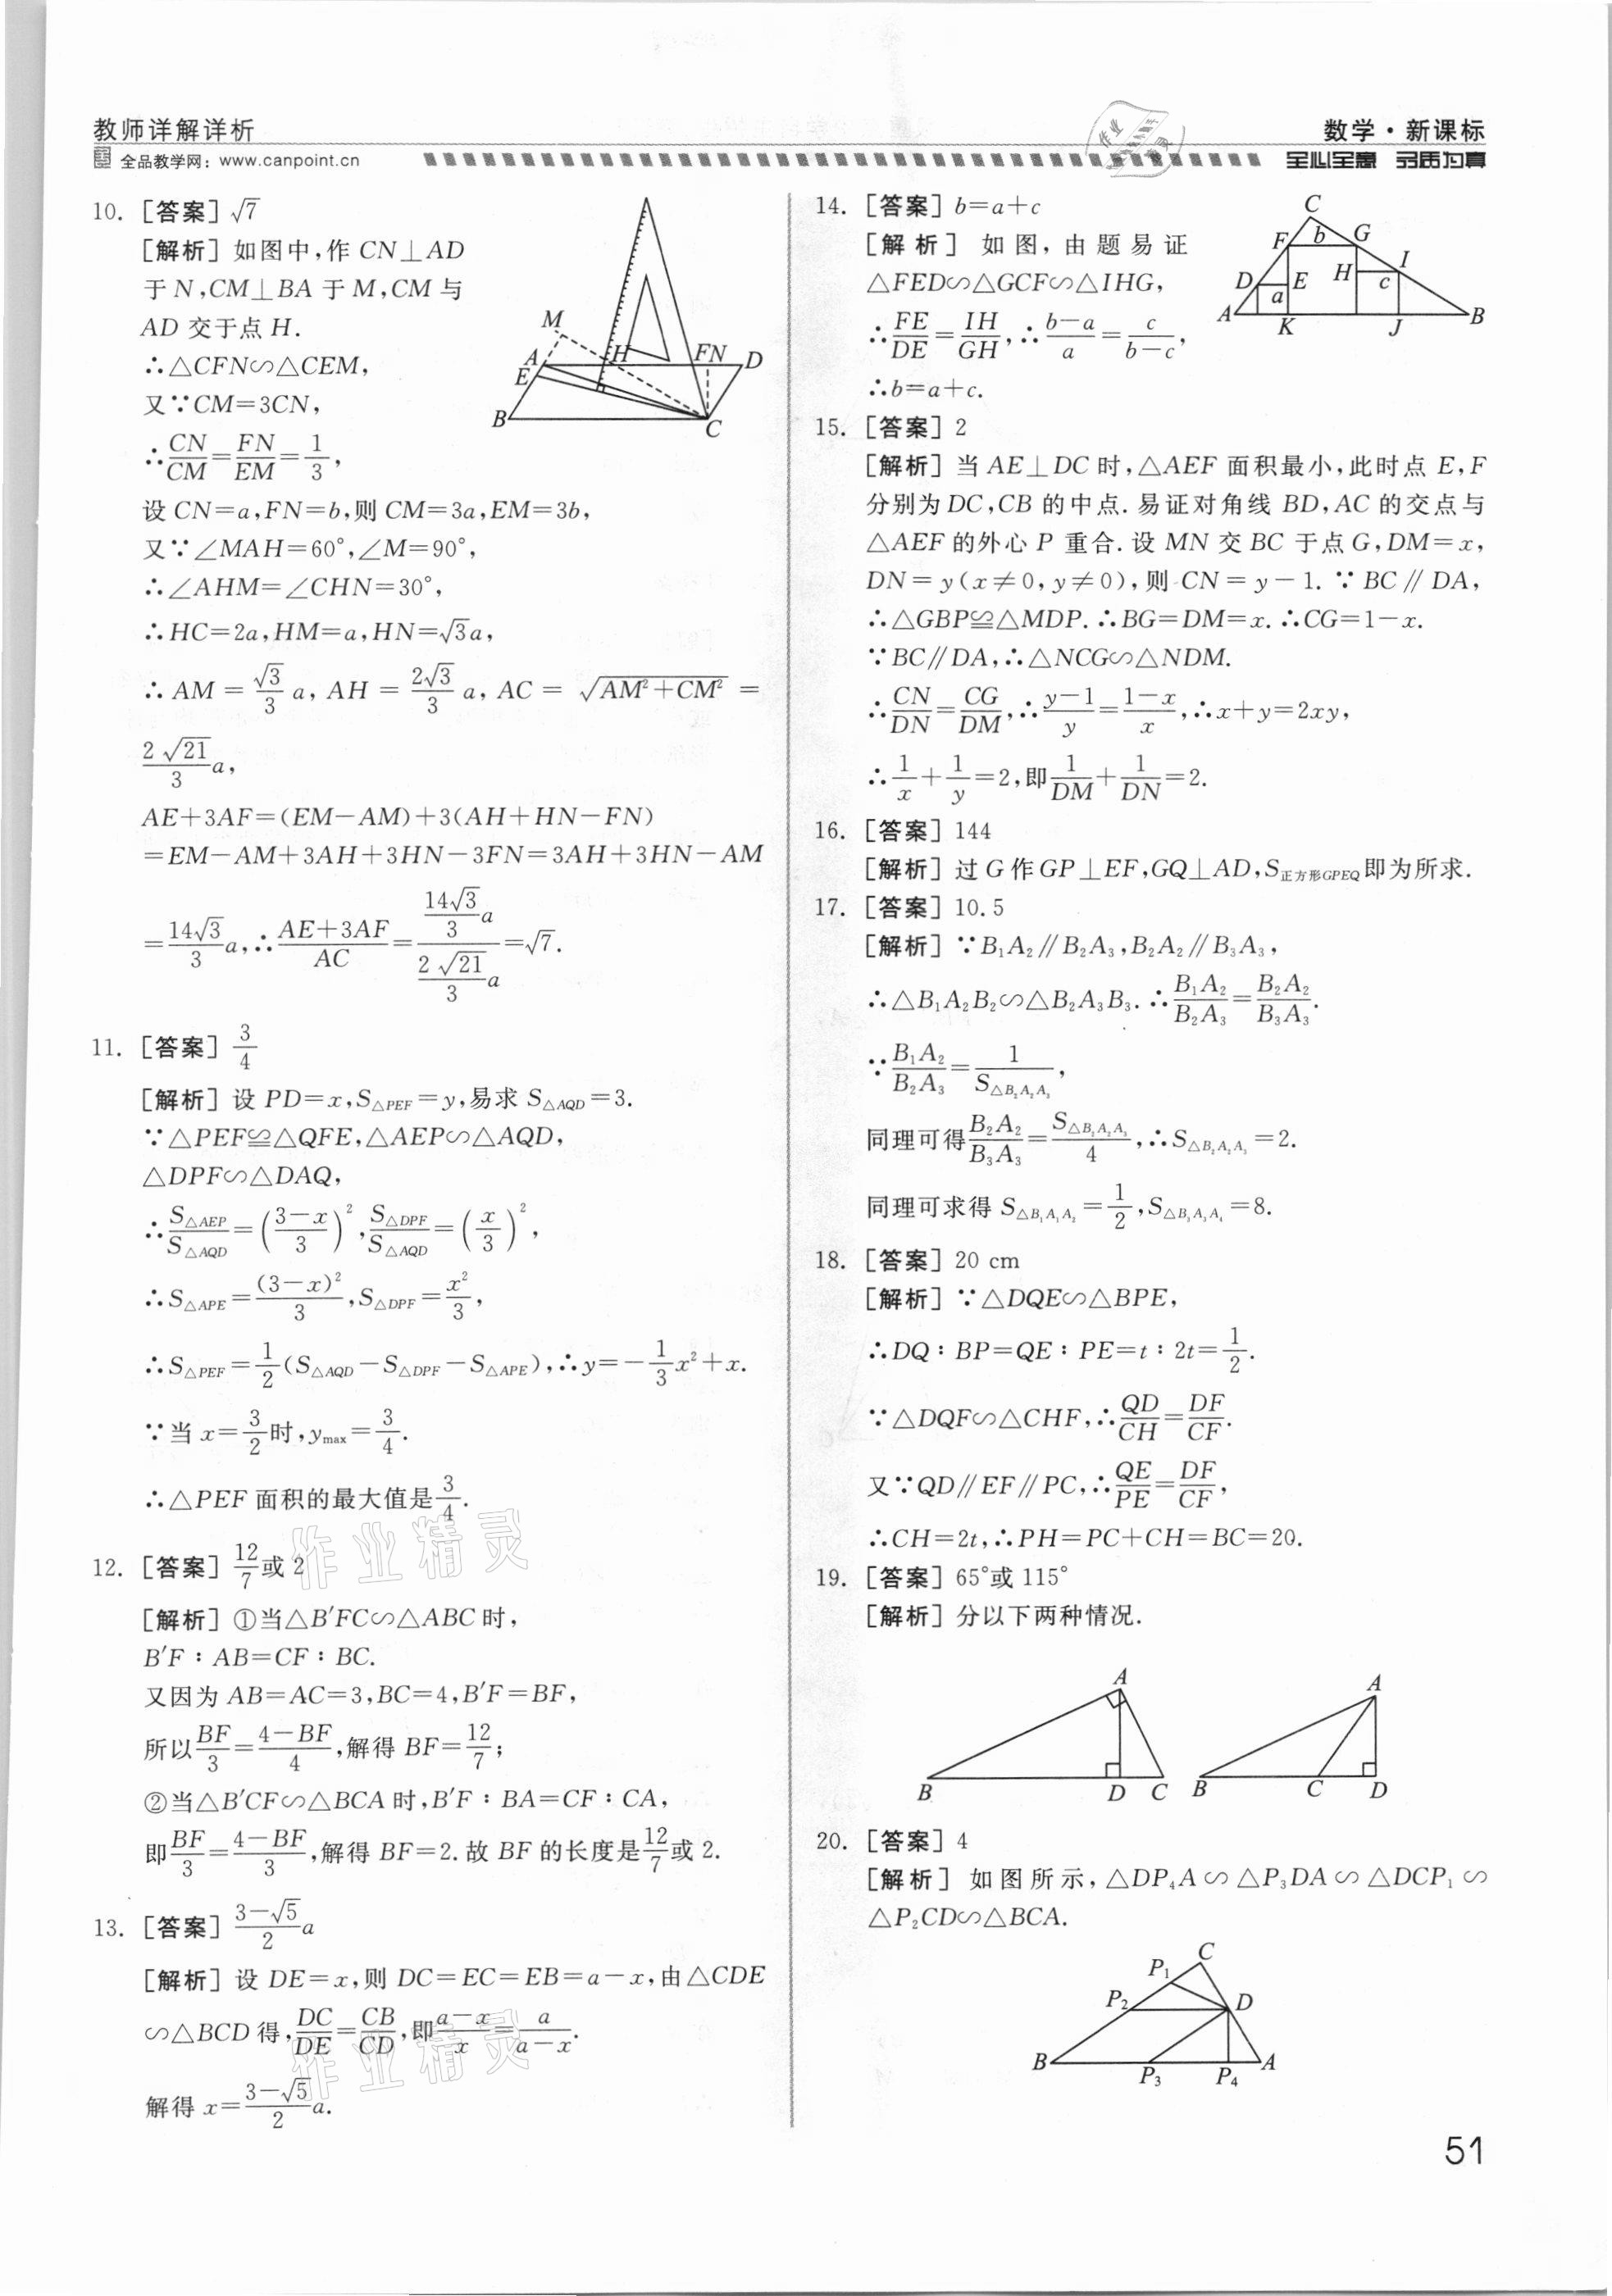 教师详解详析
全品教学网：www.canpoint.cn
数学·新课标
全心全意 名质为真
10. [答案] √7
[解析] 如图中,作 CN⊥AD
于 N,CM⊥BA 于 M,CM 与
AD 交于点 H.
∴△CFN∽△CEM,
又∵CM=3CN,
∴CN/CM=FN/EM=1/3,
设 CN=a,FN=b,则 CM=3a,EM=3b,
又∵∠MAH=60°,∠M=90°,
∴∠AHM=∠CHN=30°,
∴HC=2a,HM=a,HN=√3a,
∴AM=√3/3 a, AH=2√3/3 a, AC=√(AM²+CM²)=
2√21/3 a,
AE+3AF=(EM-AM)+3(AH+HN-FN)
=EM-AM+3AH+3HN-3FN=3AH+3HN-AM
=14√3/3 a,∴(AE+3AF)/AC=(14√3/3 a)/(2√21/3 a)=√7.
M
A
H
FN
D
E
B
C
11. [答案] 3/4
[解析] 设 PD=x,S△PEF=y,易求 S△AQD=3.
∵△PEF≌△QFE,△AEP∽△AQD,
△DPF∽△DAQ,
∴S△AEP/S△AQD=((3-x)/3)²,S△DPF/S△AQD=(x/3)²,
∴S△APE=(3-x)²/3,S△DPF=x²/3,
∴S△PEF=1/2(S△AQD-S△DPF-S△APE),∴y=-1/3x²+x.
∵当 x=3/2时,ymax=3/4.
∴△PEF 面积的最大值是3/4.
12. [答案] 12/7或 2
[解析] ①当△B′FC∽△ABC 时,
B′F∶AB=CF∶BC.
又因为 AB=AC=3,BC=4,B′F=BF,
所以BF/3=(4-BF)/4,解得 BF=12/7;
②当△B′CF∽△BCA 时,B′F∶BA=CF∶CA,
即BF/3=(4-BF)/3,解得 BF=2.故 BF 的长度是12/7或 2.
13. [答案] (3-√5)/2 a
[解析] 设 DE=x,则 DC=EC=EB=a-x,由△CDE
∽△BCD 得,DC/DE=CB/CD,即(a-x)/x=a/(a-x).
解得 x=(3-√5)/2 a.
14. [答案] b=a+c
[解析] 如图,由题易证
△FED∽△GCF∽△IHG,
∴FE/DE=IH/GH,∴(b-a)/a=c/(b-c),
∴b=a+c.
C
F b G
H I
D E c
a
A K J B
15. [答案] 2
[解析] 当 AE⊥DC 时,△AEF 面积最小,此时点 E,F
分别为 DC,CB 的中点.易证对角线 BD,AC 的交点与
△AEF 的外心 P 重合.设 MN 交 BC 于点 G,DM=x,
DN=y(x≠0,y≠0),则 CN=y-1.∵BC∥DA,
∴△GBP≌△MDP.∴BG=DM=x.∴CG=1-x.
∵BC∥DA,∴△NCG∽△NDM.
∴CN/DN=CG/DM,∴(y-1)/y=(1-x)/x,∴x+y=2xy,
∴1/x+1/y=2,即1/DM+1/DN=2.
16. [答案] 144
[解析] 过 G 作 GP⊥EF,GQ⊥AD,S正方形GPEQ即为所求.
17. [答案] 10.5
[解析] ∵B₁A₂∥B₂A₃,B₂A₂∥B₃A₃,
∴△B₁A₂B₂∽△B₂A₃B₃.∴B₁A₂/B₂A₃=B₂A₂/B₃A₃.
∵B₁A₂/B₂A₃=1/S△B₂A₂A₃,
同理可得B₂A₂/B₃A₃=S△B₂A₂A₃/4,∴S△B₂A₂A₃=2.
同理可求得 S△B₁A₁A₂=1/2,S△B₃A₃A₄=8.
18. [答案] 20 cm
[解析] ∵△DQE∽△BPE,
∴DQ∶BP=QE∶PE=t∶2t=1/2.
∵△DQF∽△CHF,∴QD/CH=DF/CF.
又∵QD∥EF∥PC,∴QE/PE=DF/CF,
∴CH=2t,∴PH=PC+CH=BC=20.
19. [答案] 65°或 115°
[解析] 分以下两种情况.
A
B D C
A
B C D
20. [答案] 4
[解析] 如图所示,△DP₄A∽△P₃DA∽△DCP₁∽
△P₂CD∽△BCA.
C
P₁
P₂ D
B P₃ P₄ A
51
作业精灵
作业精灵